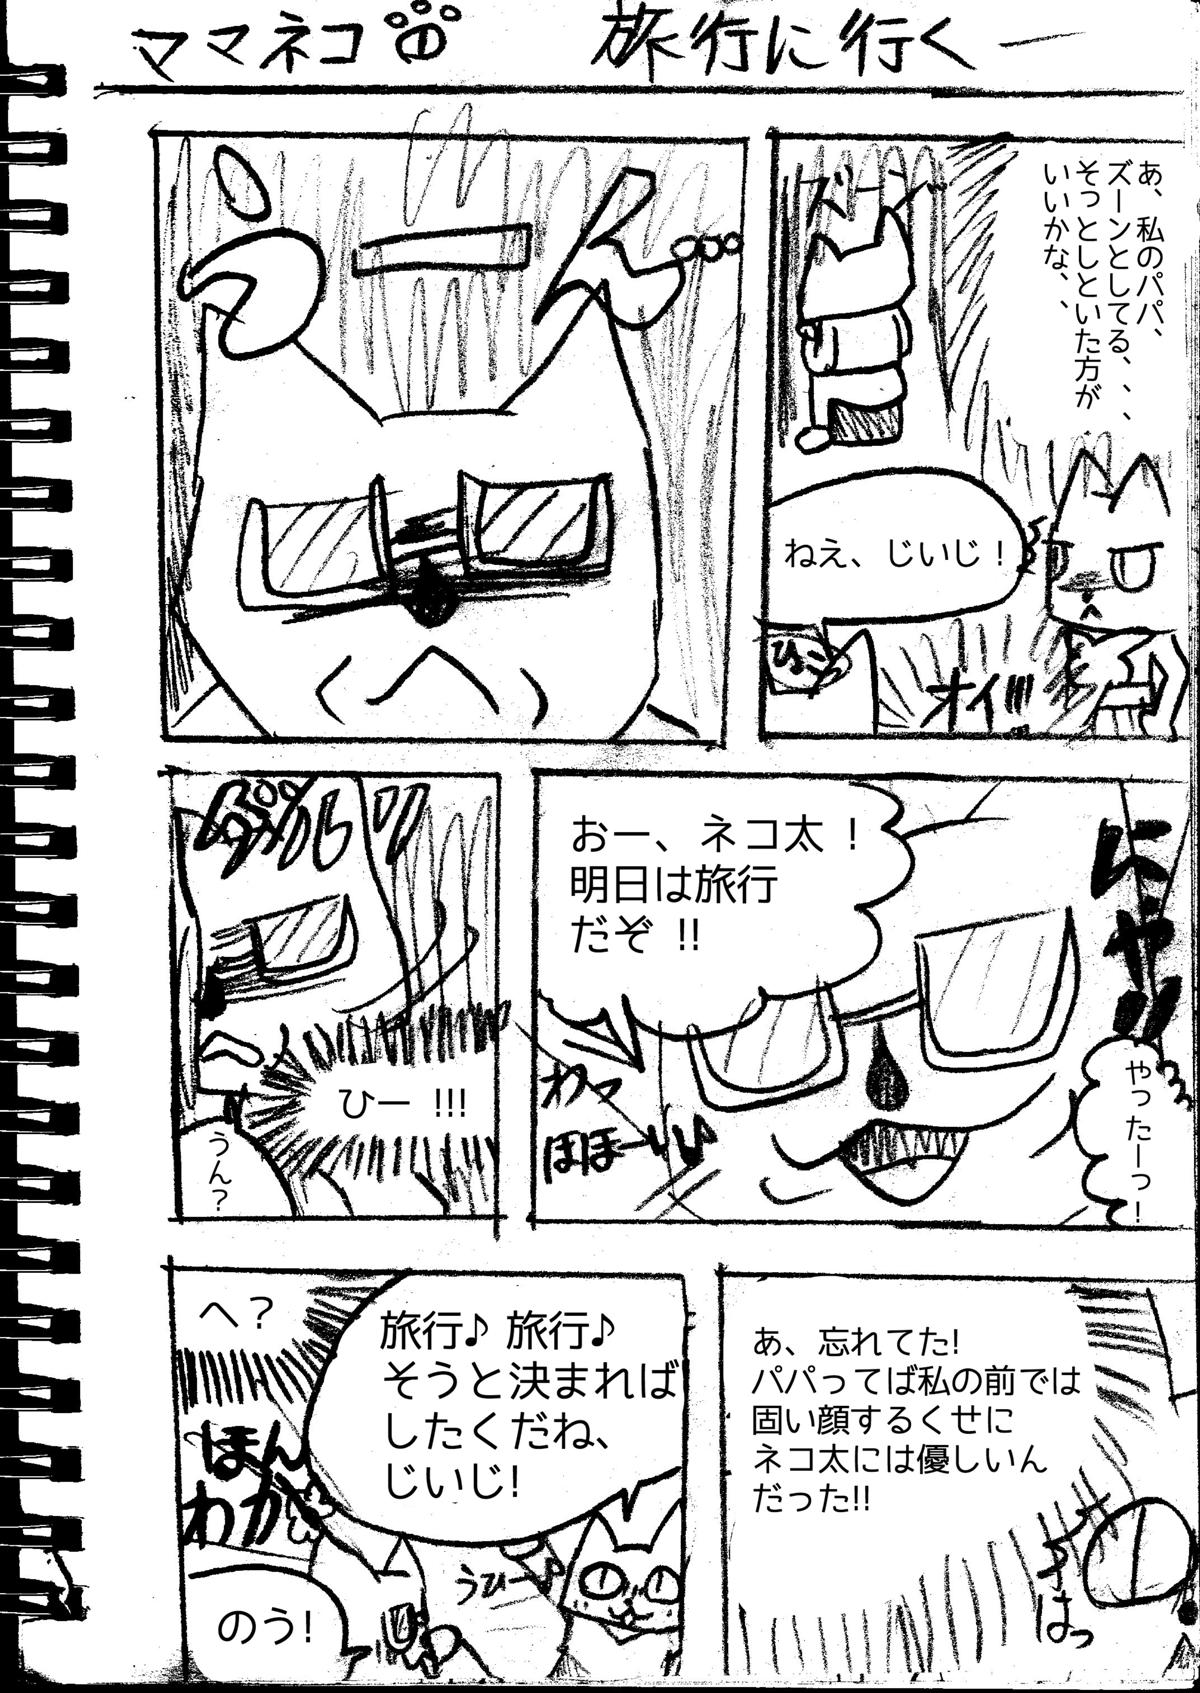 ママネコ① 旅行に行くー
あ、私のパパ、
ズーンとしてる、、、
そっとしといた方が
いいかな、、
ズーン
ねえ、じいじ！
ひょこ
オイ!!!
うーん
ひー !!!
うん？
おー、ネコ太！
明日は旅行
だぞ !!
にゃ!!
やったーっ！
わっ
ほほーい♪
あ、忘れてた!
パパってば私の前では
固い顔するくせに
ネコ太には優しいん
だった!!
はっ
旅行♪ 旅行♪
そうと決まれば
したくだね、
じいじ!
うひー♪
へ？
ほん
わか
のう!